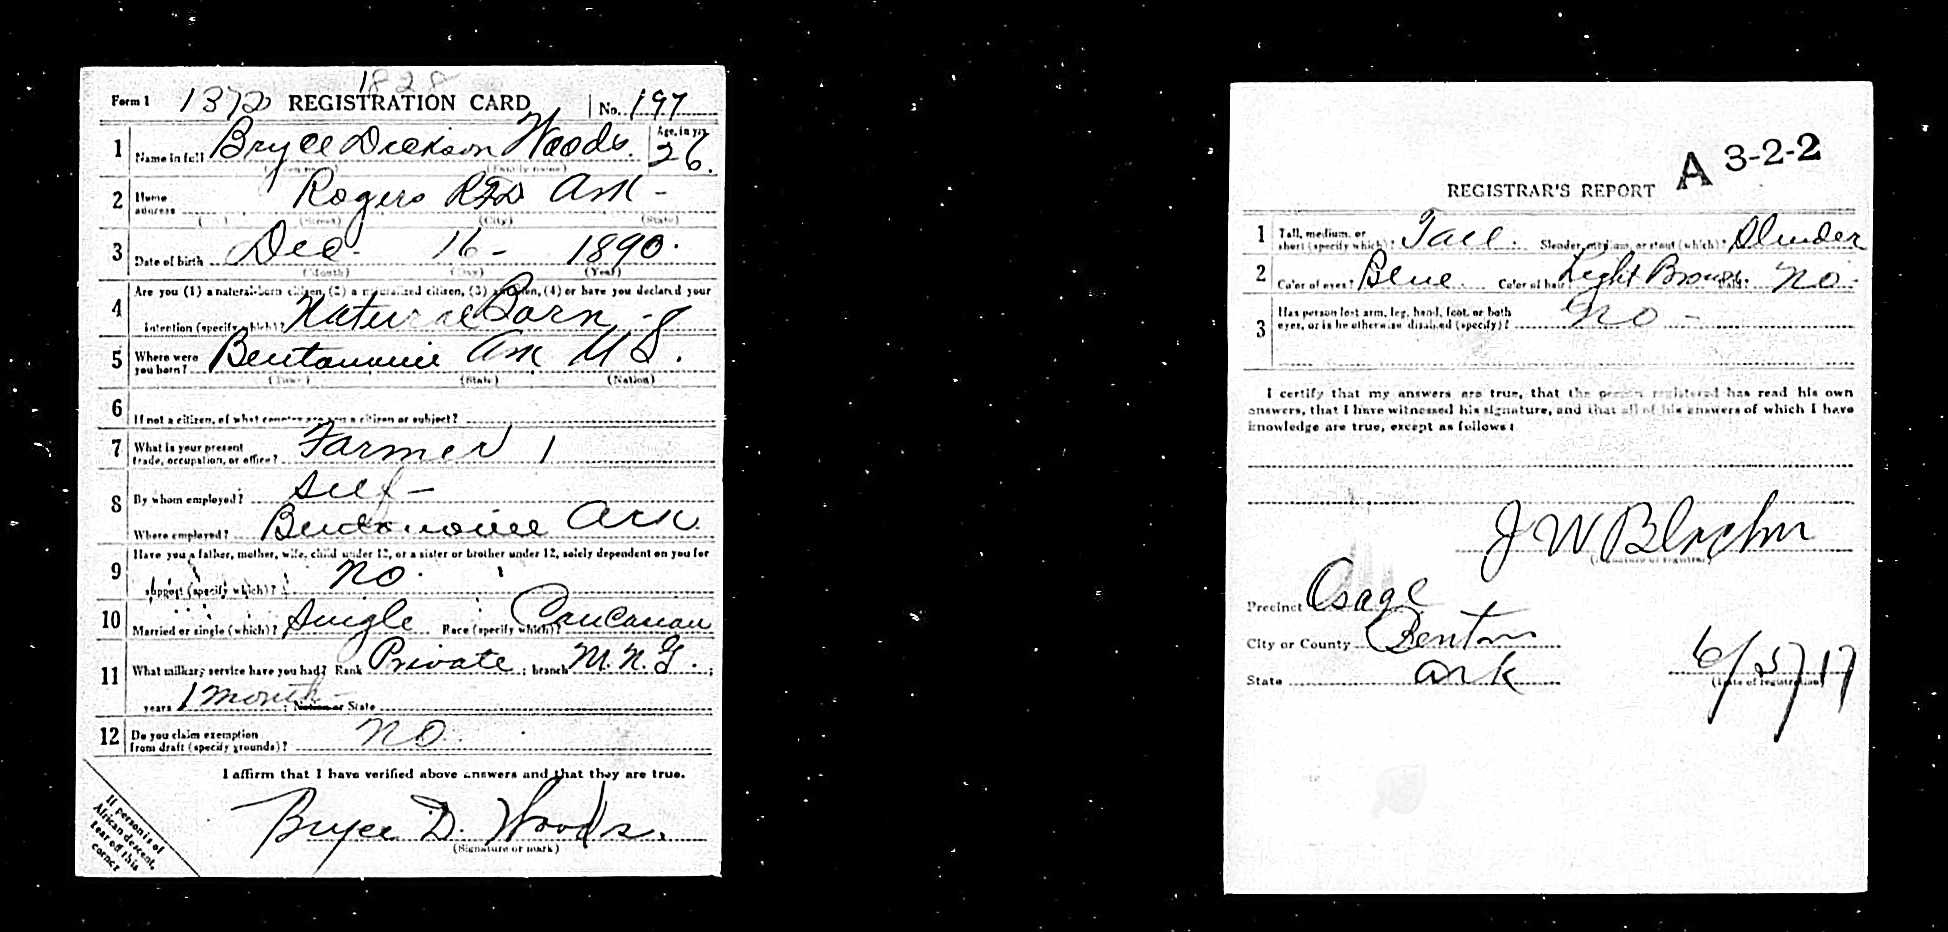 1828
Form 1 1372 REGISTRATION CARD No. 197
1 Name in full Bryce Dickson Woods. Age, in yrs. 26.
(Given name) (Family name)
2 Home address Rogers RFD Ark -
(No.) (Street) (City) (State)
3 Date of birth Dec. 16 - 1890.
(Month) (Day) (Year)
4 Are you (1) a natural-born citizen, (2) a naturalized citizen, (3) an alien, (4) or have you declared your
intention (specify which)? Natural Born -
5 Where were you born? Bentonville Ark U S.
(Town) (State) (Nation)
6 If not a citizen, of what country are you a citizen or subject?
7 What is your present trade, occupation, or office? Farmer 1
8 By whom employed? Self -
Where employed? Bentonville Ark
9 Have you a father, mother, wife, child under 12, or a sister or brother under 12, solely dependent on you for
support (specify which)? No.
10 Married or single (which)? Single Race (specify which)? Caucasian
11 What military service have you had? Rank Private ; branch M. N. G. ;
years 1 month - ; Nation or State
12 Do you claim exemption from draft (specify grounds)? No.
I affirm that I have verified above answers and that they are true.
Bryce D. Woods.
(Signature or mark)
If person is of
African descent,
tear off this
corner
A 3-2-2
REGISTRAR'S REPORT
1 Tall, medium, or short (specify which)? Tall. Slender, medium, or stout (which)? Slender
2 Color of eyes? Blue. Color of hair? Light Brown Bald? No.
3 Has person lost arm, leg, hand, foot, or both eyes, or is he otherwise disabled (specify)? No -
I certify that my answers are true, that the person registered has read his own
answers, that I have witnessed his signature, and that all of his answers of which I have
knowledge are true, except as follows:
J W
(Signature of registrar)
Precinct Osage
City or County Benton
State Ark 6/5/17
(Date of registration)